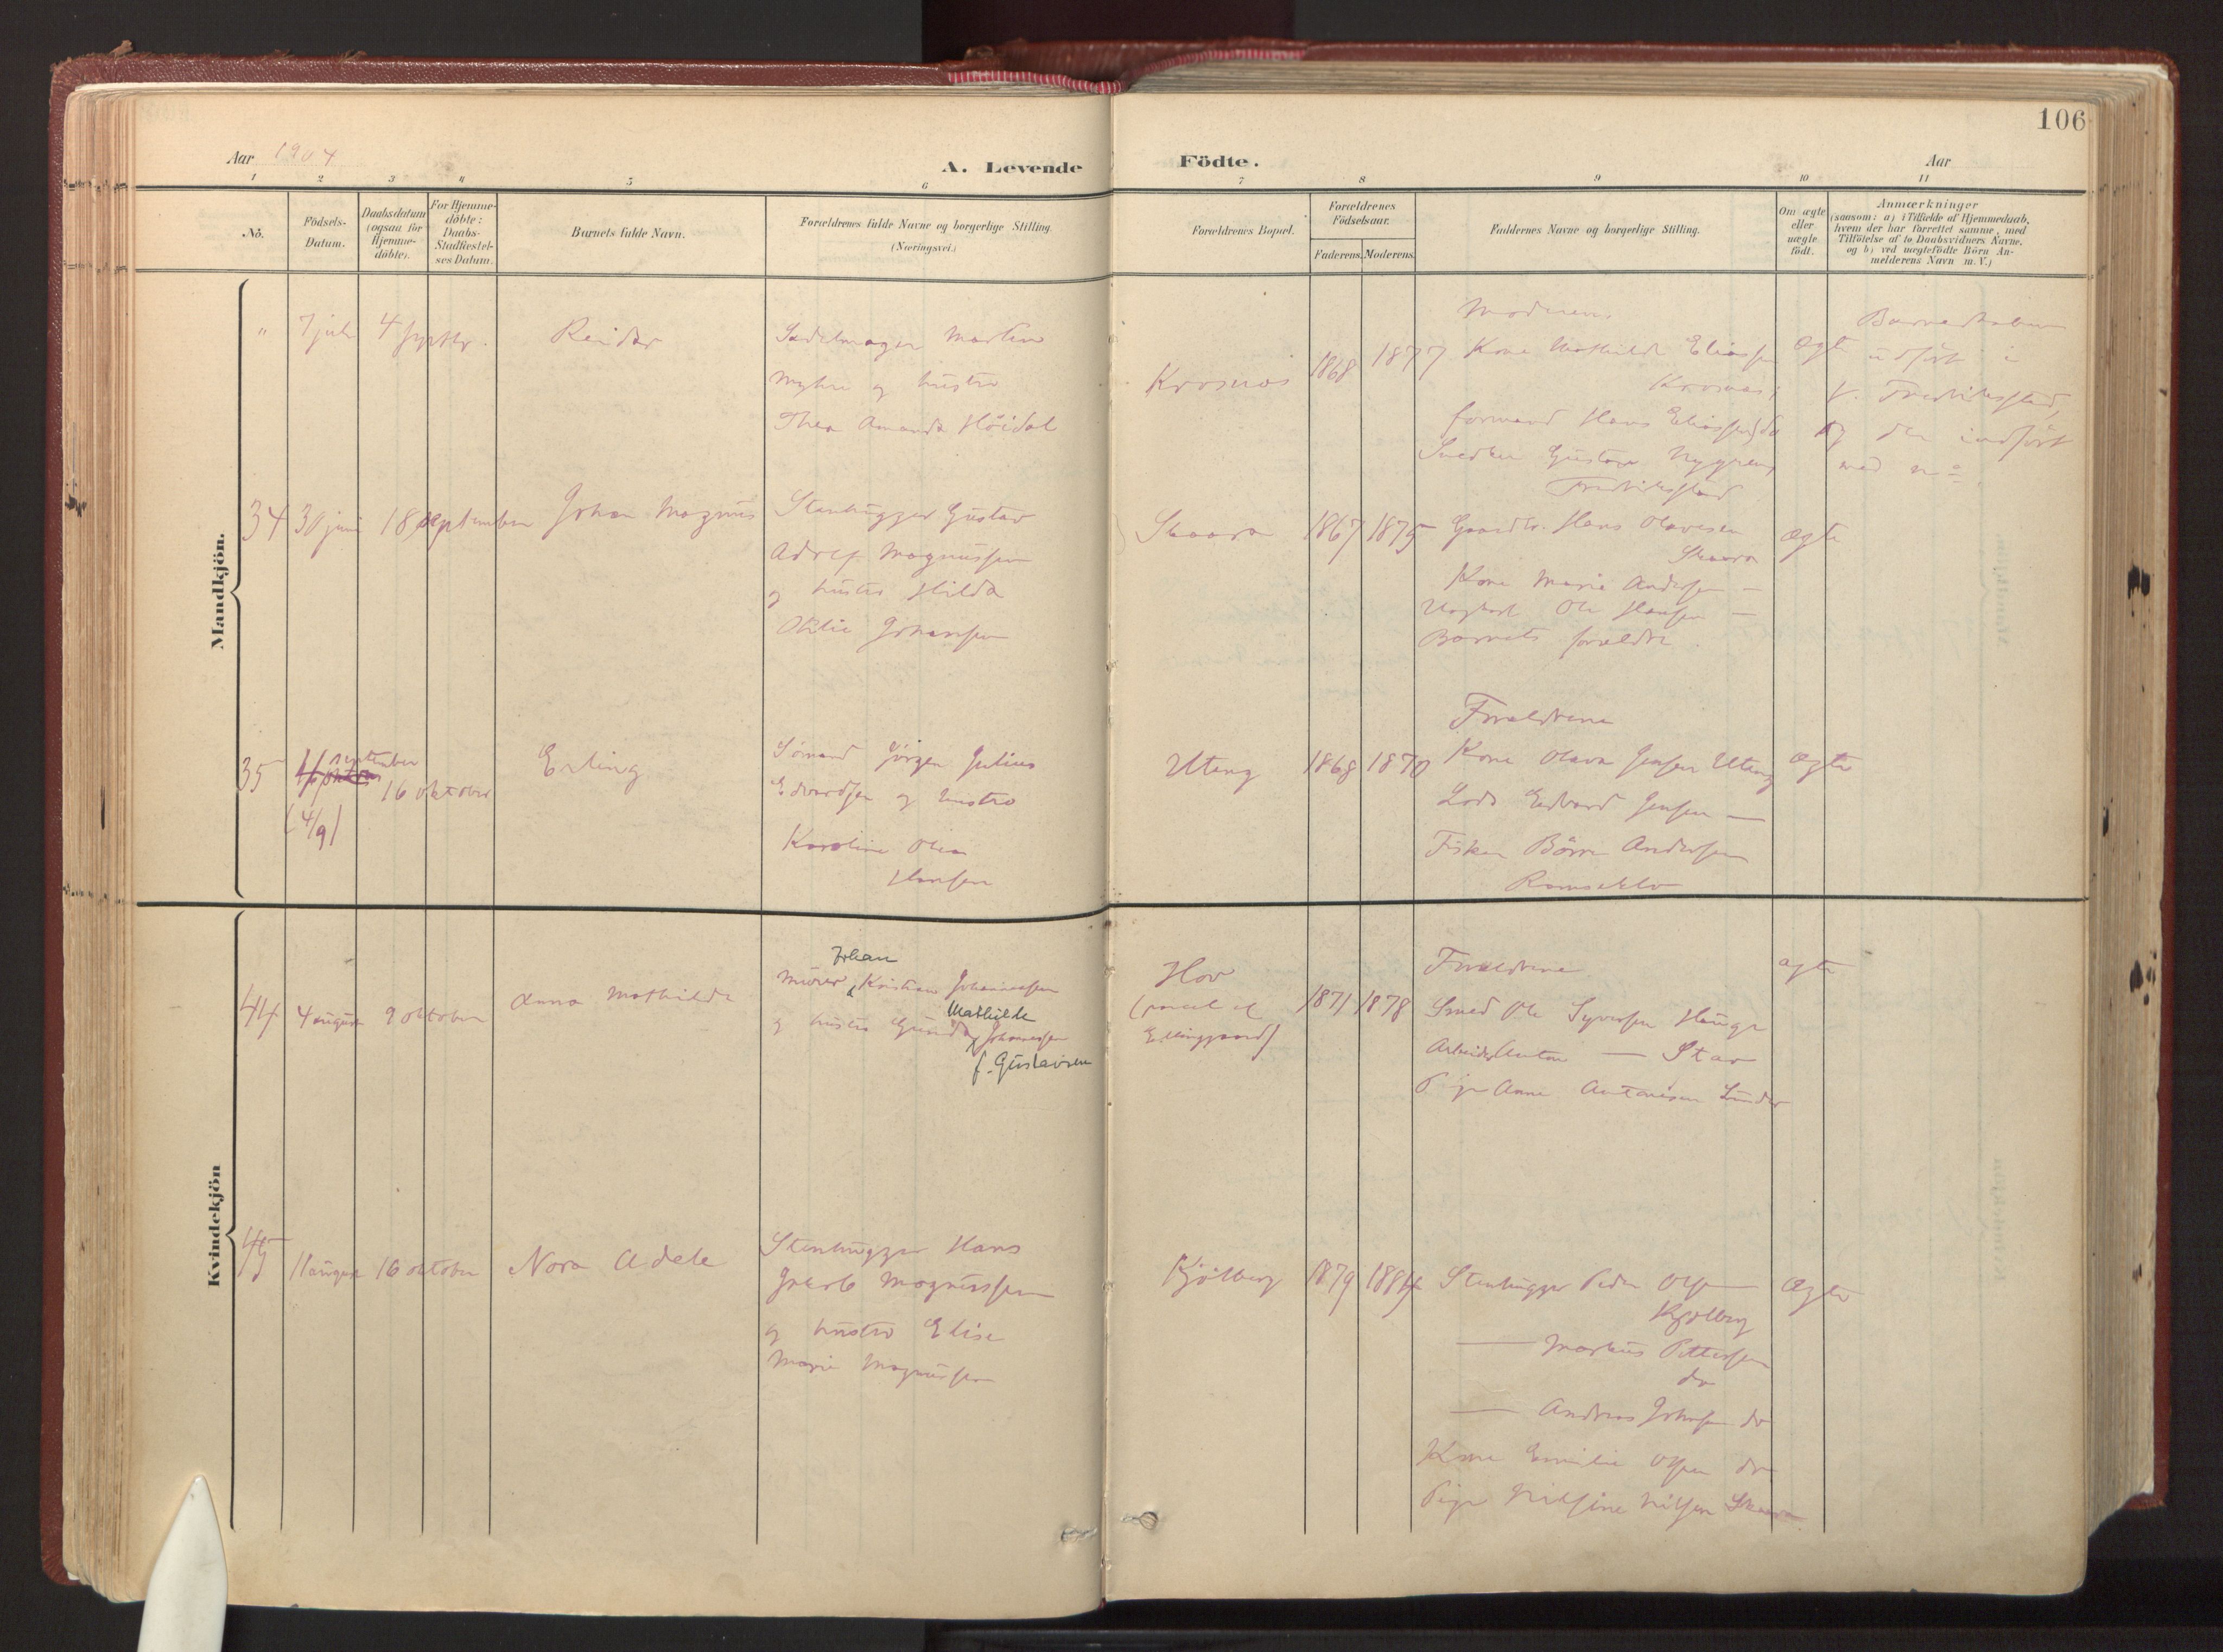 106
Aar 1904
A. Levende
Födte.
Aar
1 2 3 4 5 6 7 8 9 10 11
Nö.
Födsels-
Datum.
Daabsdatum
(ogsaa for
Hjemme-
döbte).
For Hjemme-
döbte:
Daabs-
Stadfæstel-
ses Datum.
Barnets fulde Navn.
Forældrenes fulde Navne og borgerlige Stilling
(Næringsvei.)
Forældrenes Bopæl.
Forældrenes
Födselsaar.
Faderens.
Moderens.
Faddernes Navne og borgerlige Stilling.
Om ægte
eller
uægte
födt.
Anmærkninger
(saasom: a) i Tilfælde af Hjemmedaab,
hvem der har forrettet samme, med
Tilföielse af to Daabsvidners Navne,
og b) ved uægtefödte Börn An-
melderens Navn m. V.)
Mandkjön.
"
7 juli
4 septbr.
Reidar
Sadelmager Martin
Myhre og hustro
Thea Amanda Höidal
Krosnæs
1868
1877
Moderen
Kone Mathilde Eliassen
Krosnæs;
formand Hans Eliassen, do
Snedker Gustav Nygren,
Fredrikstad
ægte
udført i
V. Fredriksstad,
og der indført
med no
34
30 juni
18 september
Johan Magnus
Stenhugger Gustav
Adolf Magnussen
og hustro Hilda
Otilie Johansen
Skaara
1867
1875
Gaardbr. Hans Olavesen
Skaara
Kone Marie Andersen —
Ungkarl Ole Hansen —
Barnets forældre.
ægte
35
september
(4/9)
16 oktober
Erling
Sömand Jörgen Julius
Edvardsen og hustro
Karoline Olea
Hansen
Uteng
1868
1870
Forældrene
Kone Olava Jensen Uteng
Lods Edvard Jensen —
Fisker Börre Andersen
Ramseklo
ægte
Kvindekjön
44
4 august
9 oktober
Anna Mathilde
Johan
Murer Kristian Johannessen
Mathilde
og hustro Gunda Johannessen
f. Gustavsen
Hov
(parcel af
Ellinggaard)
1871
1878
Forældrene
Smed Ole Syversen Hauge
Arbeider Anton — Stav
Pige Anna Antonisen Lunder
ægte
45
11 august
16 oktober
Nora Adele
Stenhugger Hans
Jakob Magnussen
og hustro Elise
Marie Magnussen
Kjölberg
1879
1884
Stenhugger Peder Olsen
Kjölberg
— Markus Pettersen
do
— Andreas Johnsen do
Kone Emilie Olsen do
Pige Nilsine Nilsen Skaara
ægte